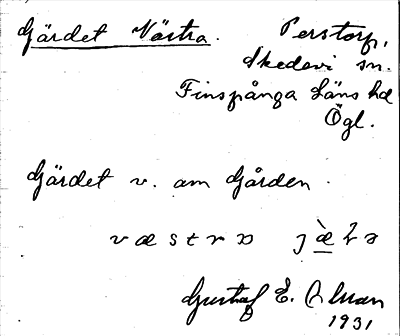 Gärdet Västra. Perstorp,
Skedevi sn.
Finspånga Läns hd
Ögl.
Gärdet v. om Gården.
væstrɒ
Gustaf E.
1931